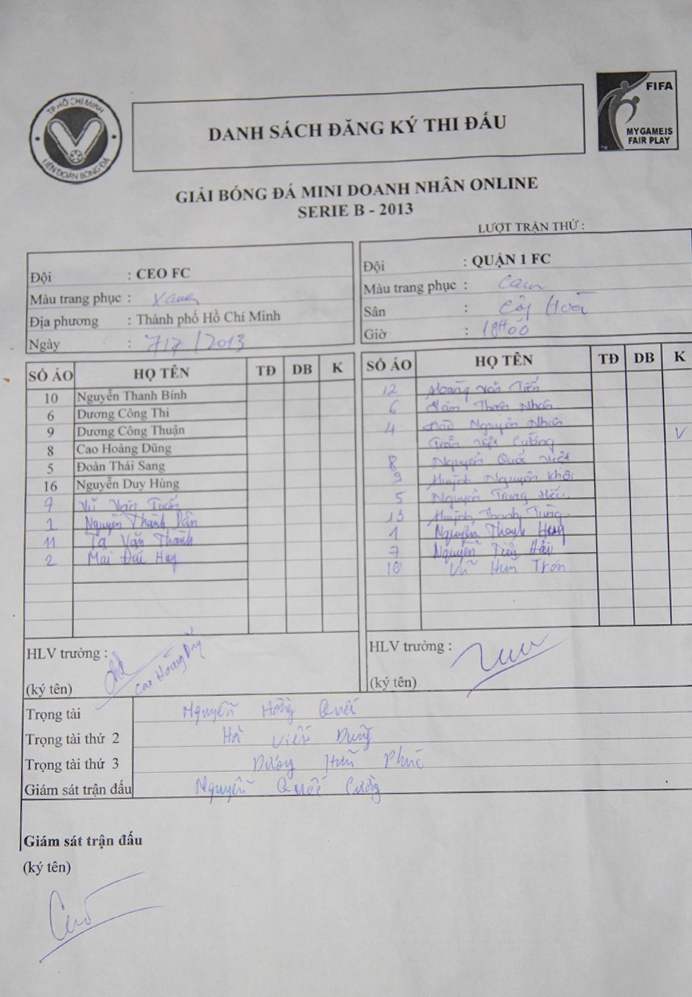 TP.HỒ CHÍ MINH
LIÊN ĐOÀN BÓNG ĐÁ
DANH SÁCH ĐĂNG KÝ THI ĐẤU
FIFA
MY GAME IS
FAIR PLAY
GIẢI BÓNG ĐÁ MINI DOANH NHÂN ONLINE
SERIE B - 2013
LƯỢT TRẬN THỨ :
Đội : CEO FC
Màu trang phục : Xanh
Địa phương : Thành phố Hồ Chí Minh
Ngày : 7/7/2013
Đội : QUẬN 1 FC
Màu trang phục : Cam
Sân : Cây
Giờ : 18H00
SỐ ÁO HỌ TÊN TĐ DB K
10 Nguyễn Thanh Bình
6 Dương Công Thi
9 Dương Công Thuận
8 Cao Hoàng Dũng
5 Đoàn Thái Sang
16 Nguyễn Duy Hùng
7 Vũ Văn Tuấn
1 Nguyễn Thành
11 Tạ Văn Thành
2 Mai Đức Huy
SỐ ÁO HỌ TÊN TĐ DB K
12 Hoàng Văn Tiến
6 Nhân
4 Nguyên Nhân V
Trần Việt Cường
8 Nguyễn Quốc Việt
9 Huỳnh Nguyên Khôi
5 Nguyễn Trung
13 Huỳnh Thanh Tùng
1 Nguyễn Thanh
7 Nguyễn Tiến Hải
10 Vũ
HLV trưởng :
(ký tên)
Cao Hoàng Dũng
HLV trưởng :
(ký tên)
Trọng tài Nguyễn Hồng Quốc
Trọng tài thứ 2 Hà Viết Dũng
Trọng tài thứ 3 Dương Hữu Phúc
Giám sát trận đấu Nguyễn Quốc Cường
Giám sát trận đấu
(ký tên)